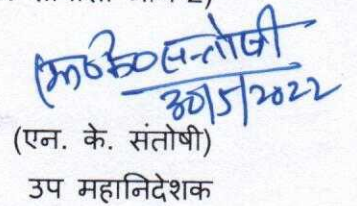 संतोषी
30/5/2022
(एन. के. संतोषी)
उप महानिदेशक